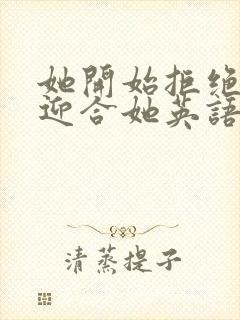 她開始拒绝
迎合她英語
清蒸提子